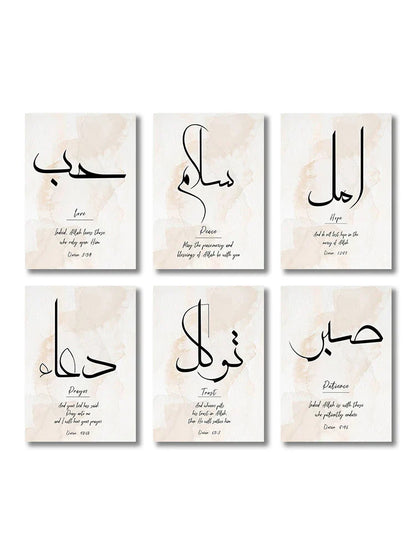 حب
Love
Indeed, Allah loves those
who rely upon Him
سلام
Peace
May the peace mercy and
blessings of Allah be with you
امل
Hope
And do not lost hope in the
mercy of Allah
دعاء
Prayer
And your lord has said:
Pray unto me
and I will hear your prayers
توكل
Trust
And whoever puts
his trust in Allah,
then He will suffice him
صبر
Patience
Indeed, Allah is with those
who patiently endure